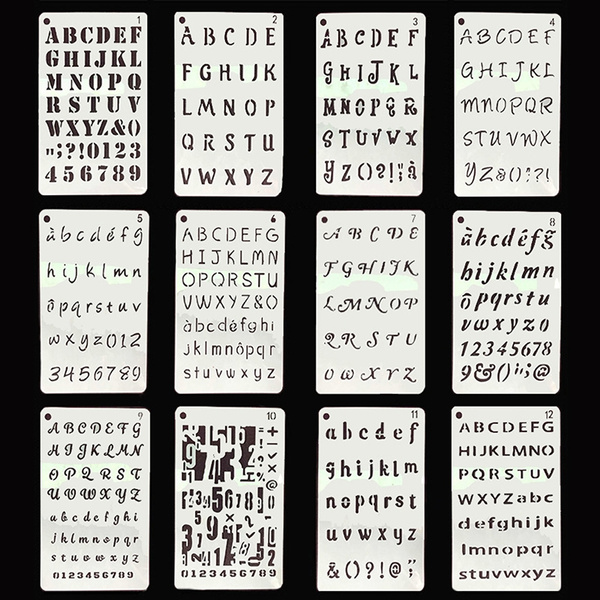 1
ABCDEF
GHIJKL
MNOPQ
RSTUV
WXYZ&()
";?!0123
456789
2
ABCDE
FGHIJK
LMNOP
QRSTU
VWXYZ
3
ABCDEF
GHIJKL
MNOPQR
STUVWX
YZ()?!;à
4
ABCDEF
GHIJKL
MNOPQR
STUVWX
YZ&()?!
5
àbcdéfg
hijklmn
ôpqrstuv
wxyz012
3456789
6
ABCDEFG
HIJKLMN
OPQRSTU
VWXYZ&()
àbcdéfghi
jklmnôpqr
stuvwxyz
7
ABCDE
FGHIJK
LMNOP
QRSTU
VWXYZ
8
àbcdéfg
hijklmn
ôpqrstu
vwxyz0
12345678
9&();@
9
ABCDEFG
HIJKLMN
OPQRST
UVWXYZ
abcdefghi
jklmnopqr
stuvwxyz
0123456789
10
0123456789
11
abcdef
ghijklm
nopqrst
uvwxyz
&()?!@;
12
ABCDEFG
HIJKLMNO
PQRSTUV
WXYZabc
defghijk
lmnopqr
stuvwxyz